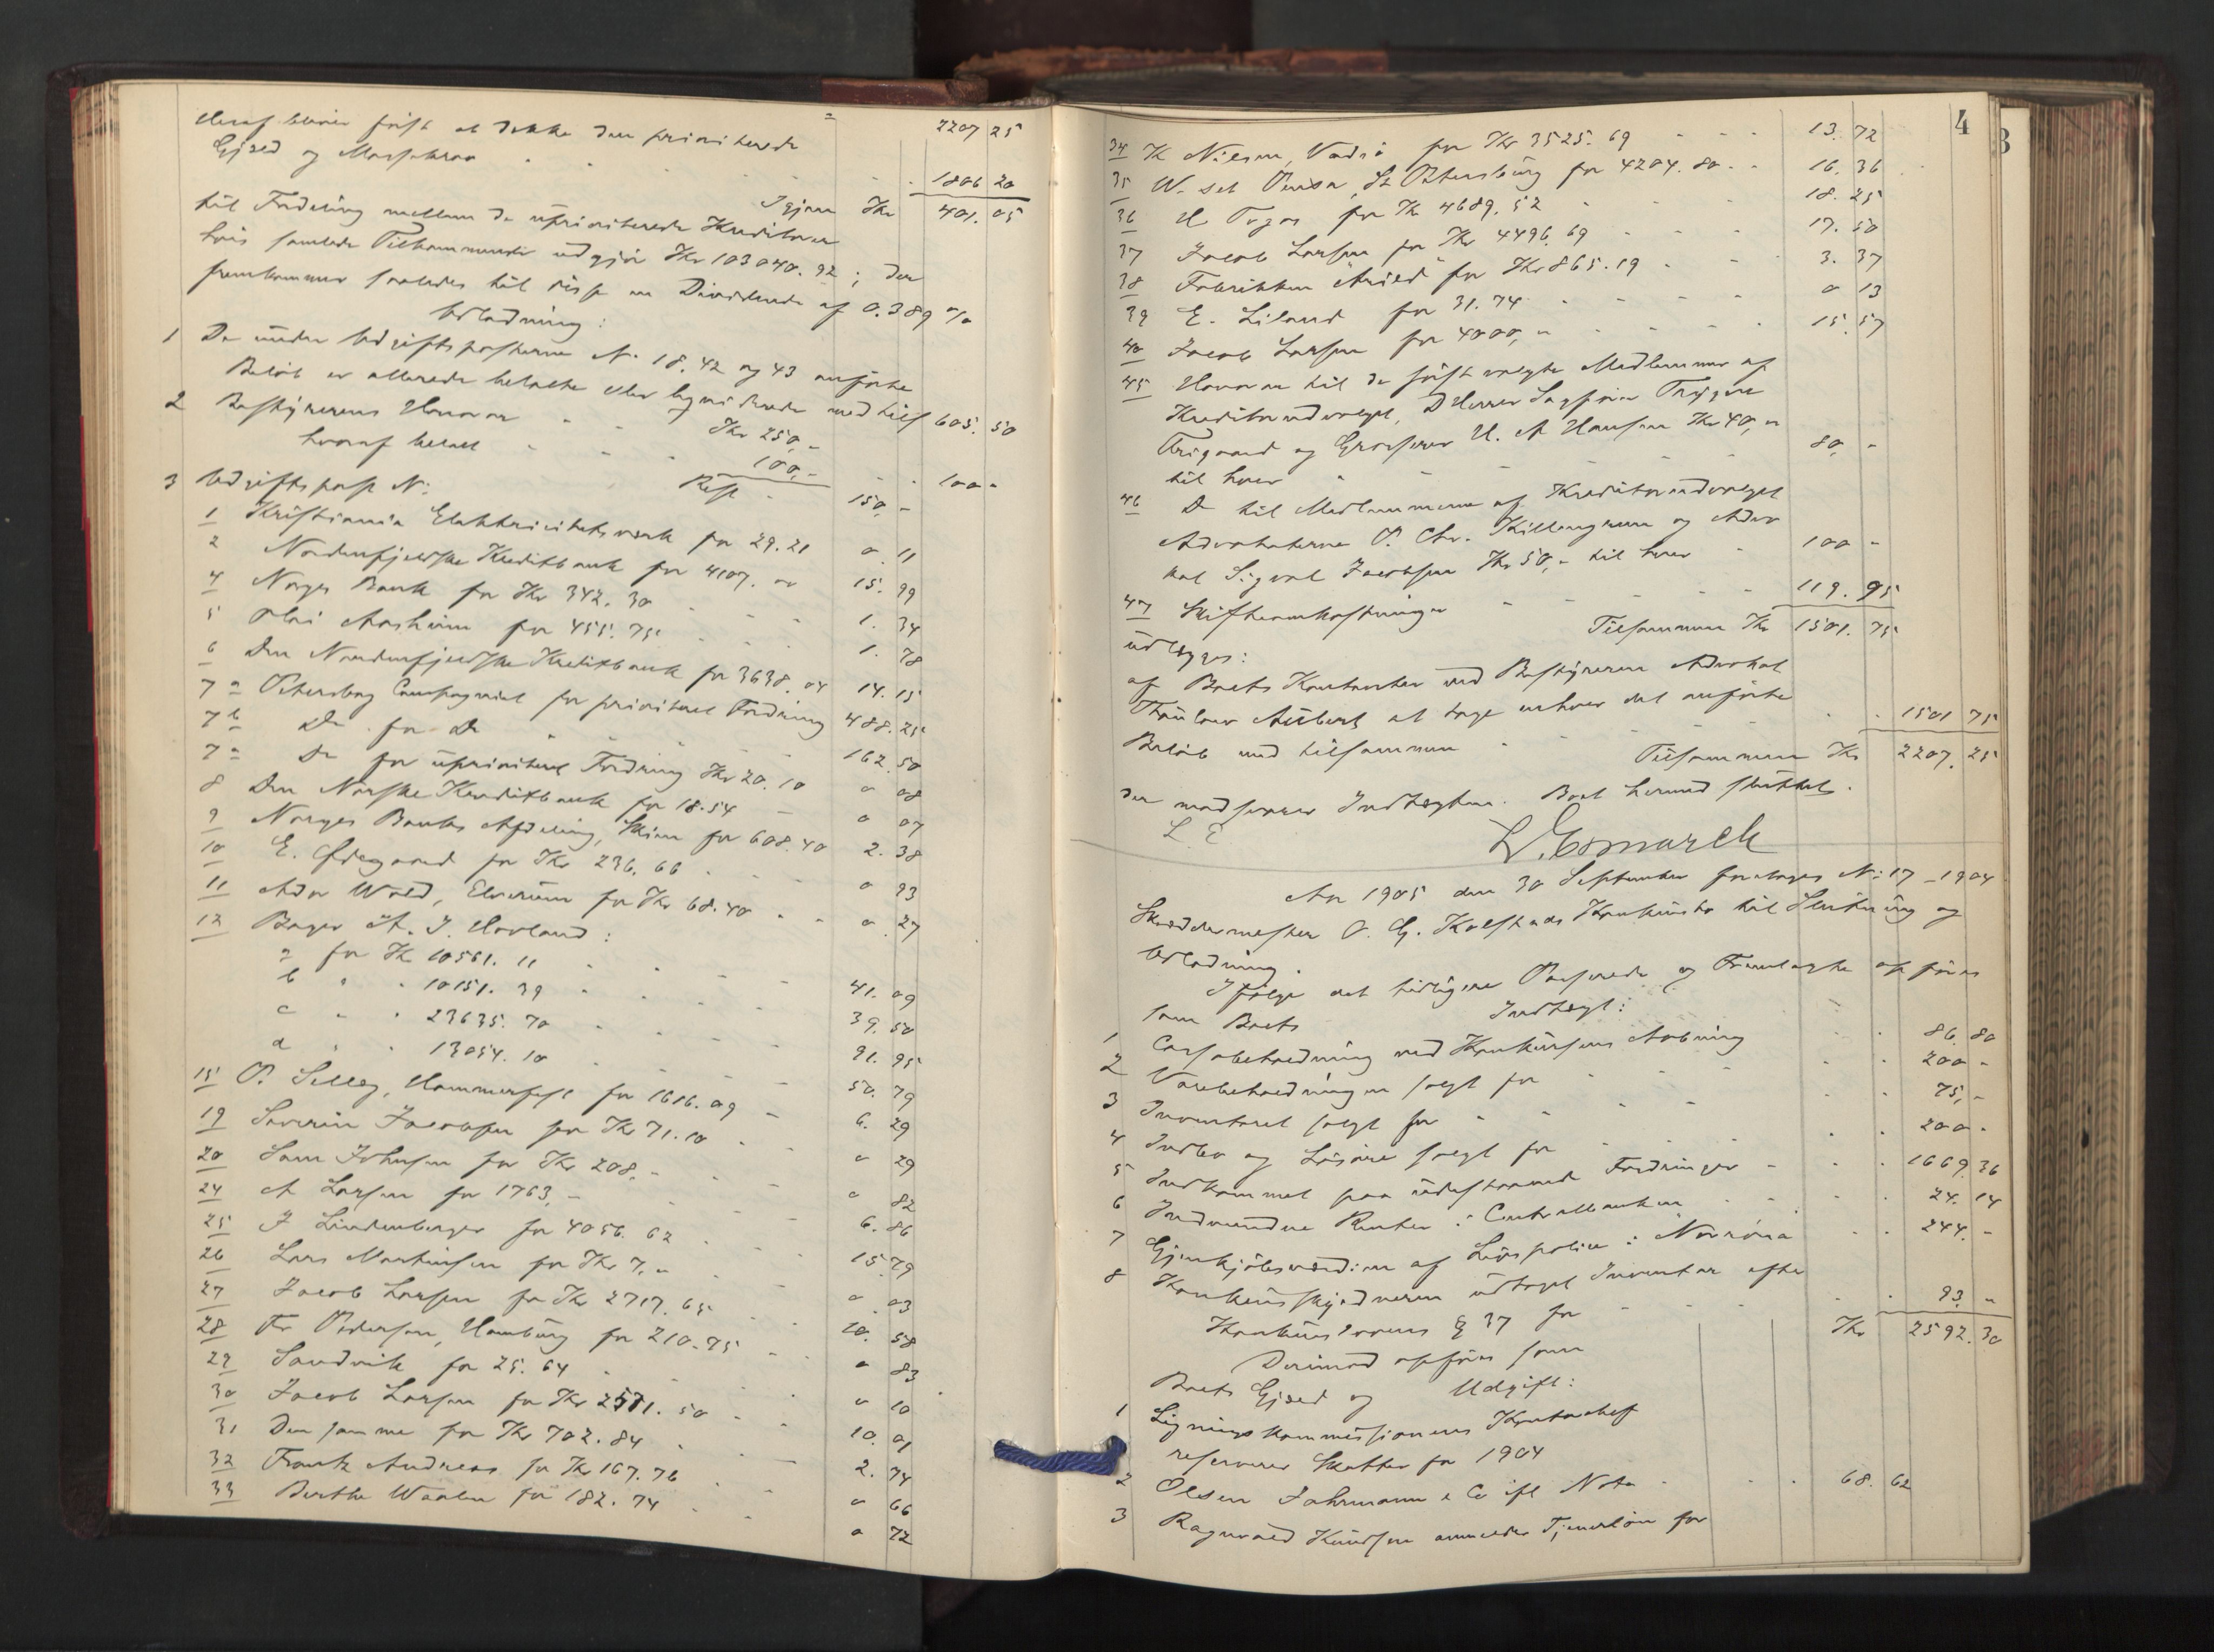 2207 25
Heraf bliver først at dække den prioriterede
Gjæld og Massekrav - - - 1806 20
Igjen Kr 401. 05
til Fordeling mellem de uprioriterede Kreditorer
hvis samlede Tilkommende udgjør Kr 103040. 92; der
fremkommer saaledes til disse en Dividende af 0.389 %
Udlodning:
1 De under Udgiftsposterne No 18, 42 og 43 anførte
Beløb er allerede betalte eller likviderede med tils 605. 50
2 Bestyrerens Honorar - - Kr 250,-
hvoraf betalt - - - 100,- - - 100 -
Rest - 150,-
3 Udgiftspost No:
1 Kristiania Elektricitetsværk for 29. 21 0 11
2 Nordenfjeldske Kreditbank for 4107. 00 15. 99
4 Norges Bank for Kr 342. 30 - - 1. 34
5 Olai Aasheim for 455. 75 - - - 1. 78
6 Den Nordenfjeldske Kreditbank for 3638. 04 14. 15
7 a Petersborg Compagniet for prioriteret Fordring 488. 25
7 b Do for Do - - - 162. 50
7 c Do for uprioriteret Fordring Kr 20. 10 0 08
8 Den Norske Kreditbank for 18. 54 - 0 07
9 Norges Banks Afdeling, Skien for 608. 40 2. 38
10 E. Ødegaard for Kr 236. 66 - - 0 93
11 Adv Wold, Elverum for Kr 68. 40 - - 0. 27
12 Bager A. J. Hovland:
a for Kr 10561. 11 - - - 41. 09
b " " 10151. 39 - - - 39. 50
c " " 23635. 70 - - - 91. 95
d " " 13054. 10 - - - 50. 79
15 P. Selleg, Hammerfest for 1616. 09 - 6. 29
19 Severin Jacobsen for Kr 71. 10 - - 0 29
20 Sam Johnsen for Kr 208,- - - 0 82
24 A Larsen for 1763,- - - - 6. 86
25 J Lindenberger for 4056. 62 - - 15. 79
26 Lars Martinsen for Kr 7,- - - 0. 03
27 Jacob Larsen for Kr 2717. 65 - - 10. 58
28 Fr Pedersen, Hamburg for 210. 75 - - 0 83
29 Sandvik for 25. 64 - - - 0 10
30 Jacob Larsen for Kr 2571. 50 - - 10. 01
31 Den samme for Kr 702. 84 - - 2. 74
32 Frantz Andreas for Kr 167. 76 - - 0 66
33 Berthe Waaler for 182. 74 - - 0 72
4
34 K Nilsen, Vadsø for Kr 3525. 69 - - - 13. 72
35 W. St Petersburg for 4204. 80 - - 16. 36
36 for Kr 4689. 52 - - 18. 25
37 Jacob Larsen for Kr 4496. 69 - - - 17. 50
38 Fabrikken for Kr 865. 19 - - 3. 37
39 E. Liland for 31. 74 - - - - 0 13
40 Jacob Larsen for 4000,- - - - - 15. 57
45 Honorar til de først valgte Medlemmer af
Kreditorudvalget, D'Herrer Sagfører Trygve
og Grosserer H. A Hansen Kr 40,-
til hver - - - - - 80,-
46 Do til Medlemmerne af Kreditorudvalget
Advokaterne P. Chr. Killengreen og Advo
kat Sigval Jacobsen Kr 50,- til hver - 100 -
47 Skifteomkostninger - - - - 119. 95
Tilsammen Kr 1501. 75
udlægges:
af Boets Kontanter ved Bestyreren Advokat
Thaulow Aubert at tage enhver det anførte
Beløb med tilsammen - - - - 1501 75
Tilsammen Kr 2207. 25
der modsvarer Indtægten. Boet hermed sluttet.
L. E
L. Esmarch
Aar 1905 den 30 September foretages No: 17 - 1904
Skræddermester O. G. Kolstads Konkursbo til Slutning og
Udlodning.
Ifølge det tidligere Passerede og Fremlagte opføres
som Boets Indtægt:
1 Cassabeholdning ved Konkursens Aabning - - 86. 80
2 Varebeholdningen solgt for - - - - 200 -
3 Inventaret solgt for - - - - 75,-
4 Indbo og Løsøre solgt for - - - - 200 -
5 Indkommet paa udestaaende Fordringer - - - 1669. 36
6 Indvundne Renter i Centralbanken - - - 24. 14
7 Gjenkjøbsværdien af Livspolice i Norrøna - - 244. -
8 Konkursskyldneren udtaget Inventar efter
Konkurslovens § 37 for - - - - 93,-
Kr 2592. 30
Derimod opføres som
Boets Gjæld og Udgift:
1 Ligningskommissionens Kontorchef
reserverer Skatter for 1904
2 Olsen Johrmann & Co ifl Nota - - - 68. 62
3 Ragnvald Knudsen anmelder Tjenerløn for